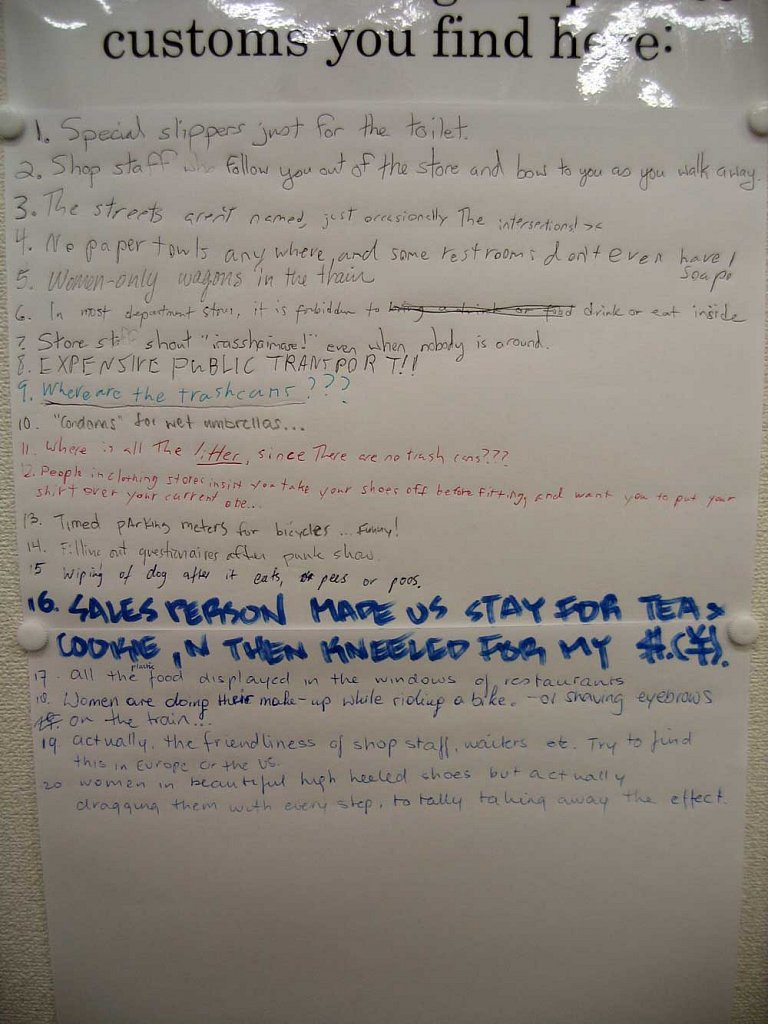 customs you find here:
1. Special slippers just for the toilet.
2. Shop staff who follow you out of the store and bow to you as you walk away.
3. The streets aren't named, just occasionally The intersections! ><
4. No paper towls any where, and some restrooms don't even have
soap!
5. Women-only wagons in the train
6. In most department stores, it is forbidden to bring a drink or food drink or eat inside
7. Store staff shout "irasshaimase!" even when nobody is around.
8. EXPENSIVE PUBLIC TRANSPORT!!
9. Where are the trashcans???
10. "Condoms" for wet umbrellas...
11. Where is all The litter, since There are no trash cans???
12. People in clothing stores insist you take your shoes off before fitting, and want you to put your
shirt over your current one...
13. Timed parking meters for bicycles ... Funny!
14. Filling out questionaires after punk show.
15 Wiping of dog after it eats, pees or poos.
16. SALES PERSON MADE US STAY FOR TEA >
COOKIE, N THEN KNEELED FOR MY #.(¥).
17. all the plastic food displayed in the windows of restaurants
18. Women are doing their make-up while riding a bike. - or shaving eyebrows
on the train...
19. actually, the friendliness of shop staff, waiters etc. Try to find
this in Europe or the US.
20 women in beautiful high heeled shoes but actually
dragging them with every step, totally taking away the effect.